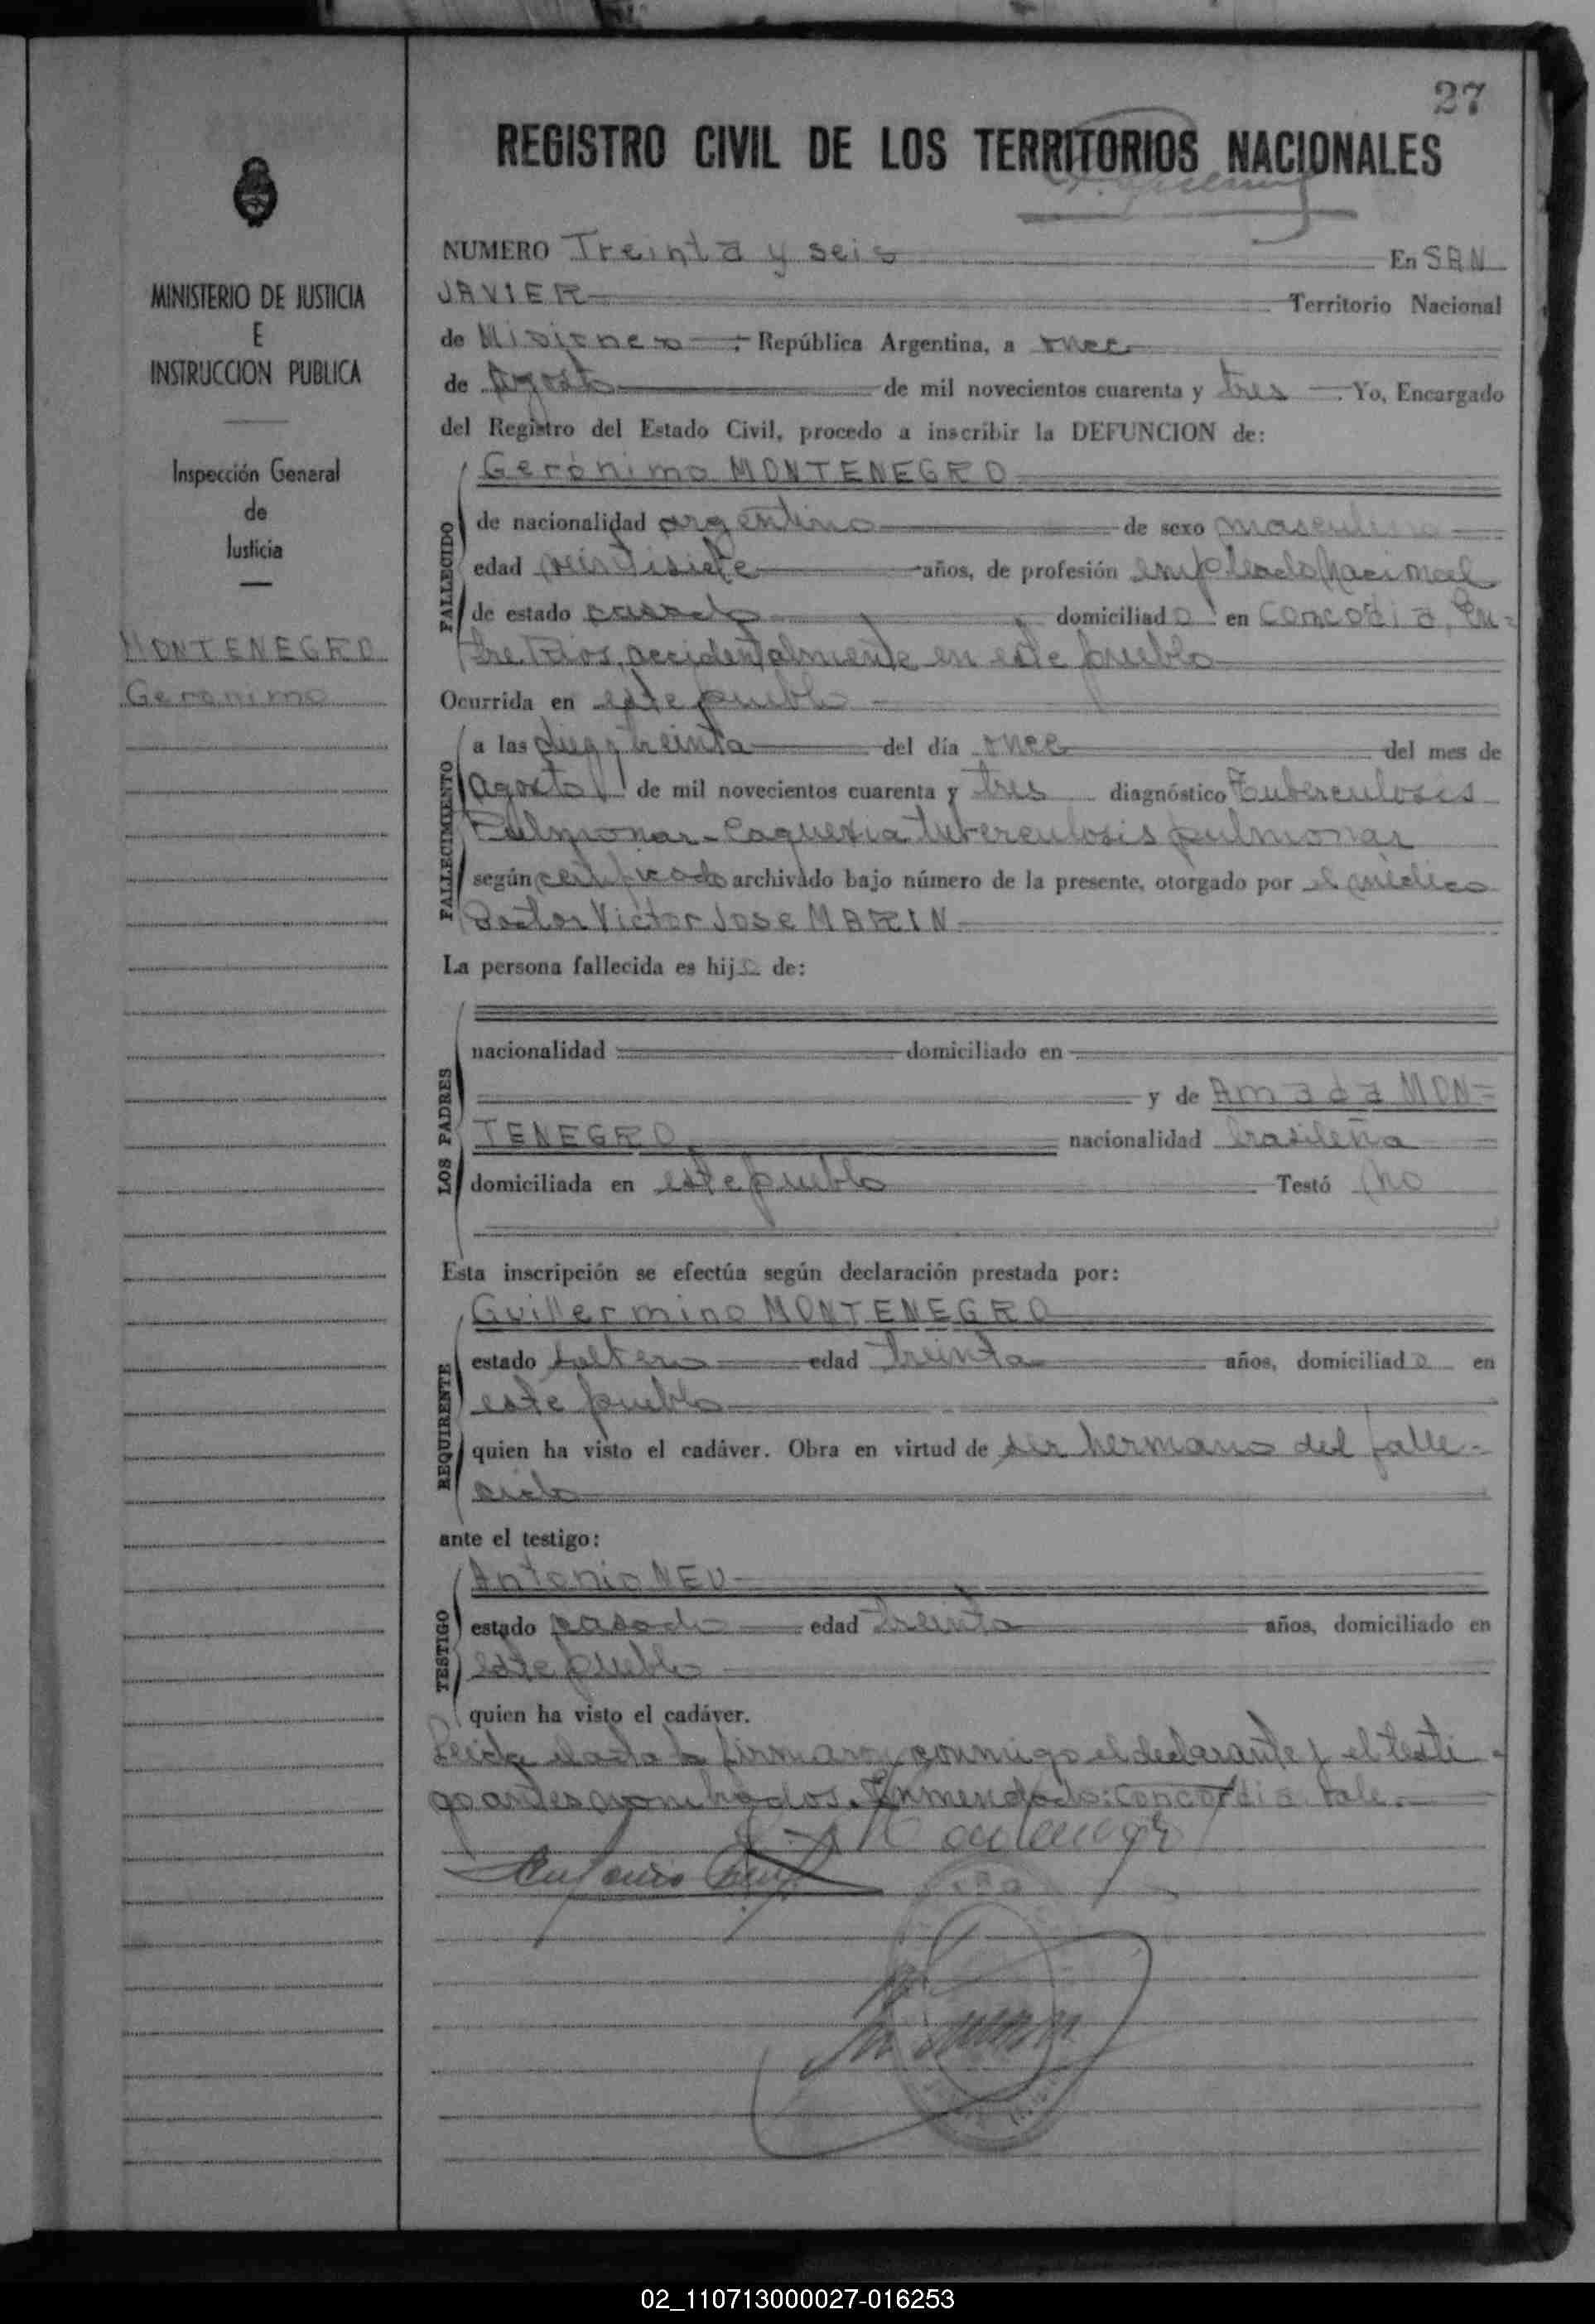 27
REGISTRO CIVIL DE LOS TERRITORIOS NACIONALES
MINISTERIO DE JUSTICIA
E
INSTRUCCION PUBLICA
Inspección General
de
Justicia
MONTENEGRO
Geronimo
NUMERO Treinta y seis En SAN
JAVIER Territorio Nacional
de Misiones ; República Argentina, a once
de Agosto de mil novecientos cuarenta y tres . Yo, Encargado
del Registro del Estado Civil, procedo a inscribir la DEFUNCION de:
FALLECIDO
Gerónimo MONTENEGRO
de nacionalidad argentino de sexo masculino
edad veintisiete años, de profesión empleado nacional
de estado casado domiciliado en Concordia, En=
tre Rios, accidentalmente en este pueblo
Ocurrida en este pueblo
FALLECIMIENTO
a las diez y treinta del día once del mes de
agosto de mil novecientos cuarenta y tres diagnóstico Tuberculosis
Pulmonar - Caquexia tuberculosis pulmonar
según certificado archivado bajo número de la presente, otorgado por el médico
Doctor Victor Jose MARIN
La persona fallecida es hijo de:
LOS PADRES
nacionalidad domiciliado en
y de Amada MON=
TENEGRO nacionalidad brasileña
domiciliada en este pueblo Testó no
Esta inscripción se efectúa según declaración prestada por:
REQUIRENTE
Guillermino MONTENEGRO
estado soltero edad treinta años, domiciliado en
este pueblo
quien ha visto el cadáver. Obra en virtud de ser hermano del falle-
cido
ante el testigo:
TESTIGO
Antonio NEU
estado casado edad treinta años, domiciliado en
este pueblo
quien ha visto el cadáver.
Leida el acta la firmaron conmigo el declarante y el testi-
go antes nombrados. Enmendado: Concordia: vale.
Montenegro
Antonio
02_110713000027-016253